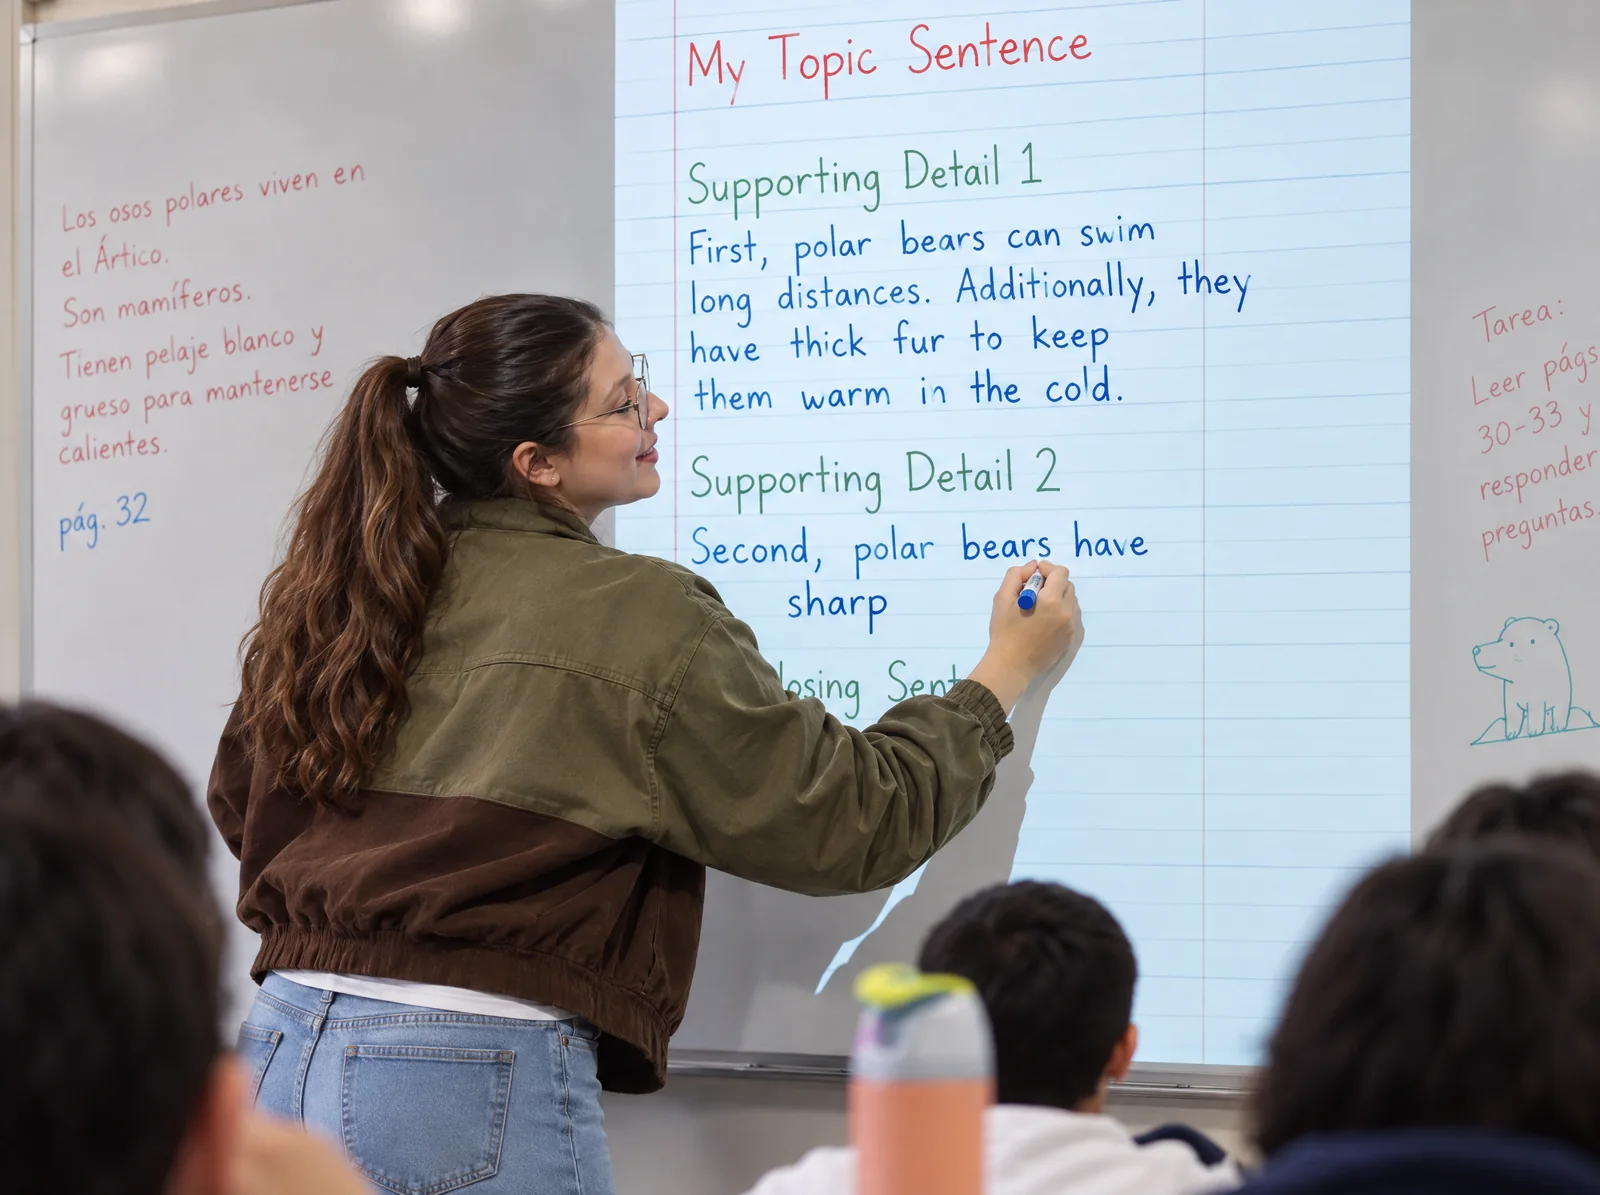 Los osos polares viven en
el Ártico.
Son mamíferos.
Tienen pelaje blanco y
grueso para mantenerse
calientes.
pág. 32
My Topic Sentence
Supporting Detail 1
First, polar bears can swim
long distances. Additionally, they
have thick fur to keep
them warm in the cold.
Supporting Detail 2
Second, polar bears have
sharp
losing Sent
Tarea:
Leer págs
30-33 y
responder
preguntas.